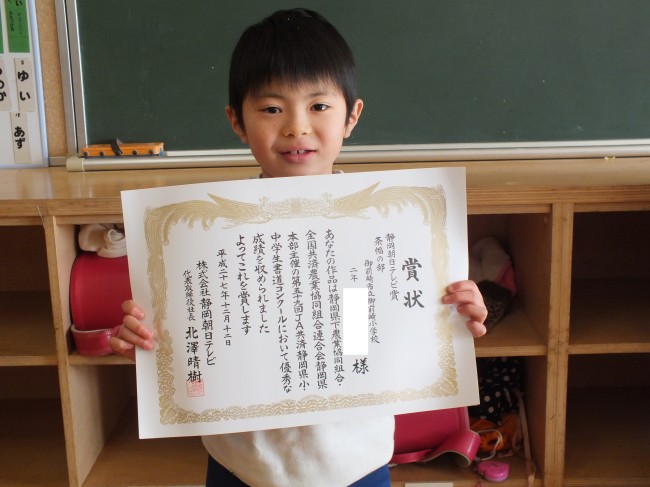 賞状
静岡朝日テレビ賞
条幅の部
御前崎市立御前崎小学校
二年
様
あなたの作品は静岡県下農業協同組合・
全国共済農業協同組合連合会静岡県
本部主催の第五十九回JA共済静岡県小・
中学生書道コンクールにおいて優秀な
成績を収められました
よってこれを賞します
平成二十七年十二月十二日
株式会社静岡朝日テレビ
代表取締役社長 北澤晴樹
ゆい
あず